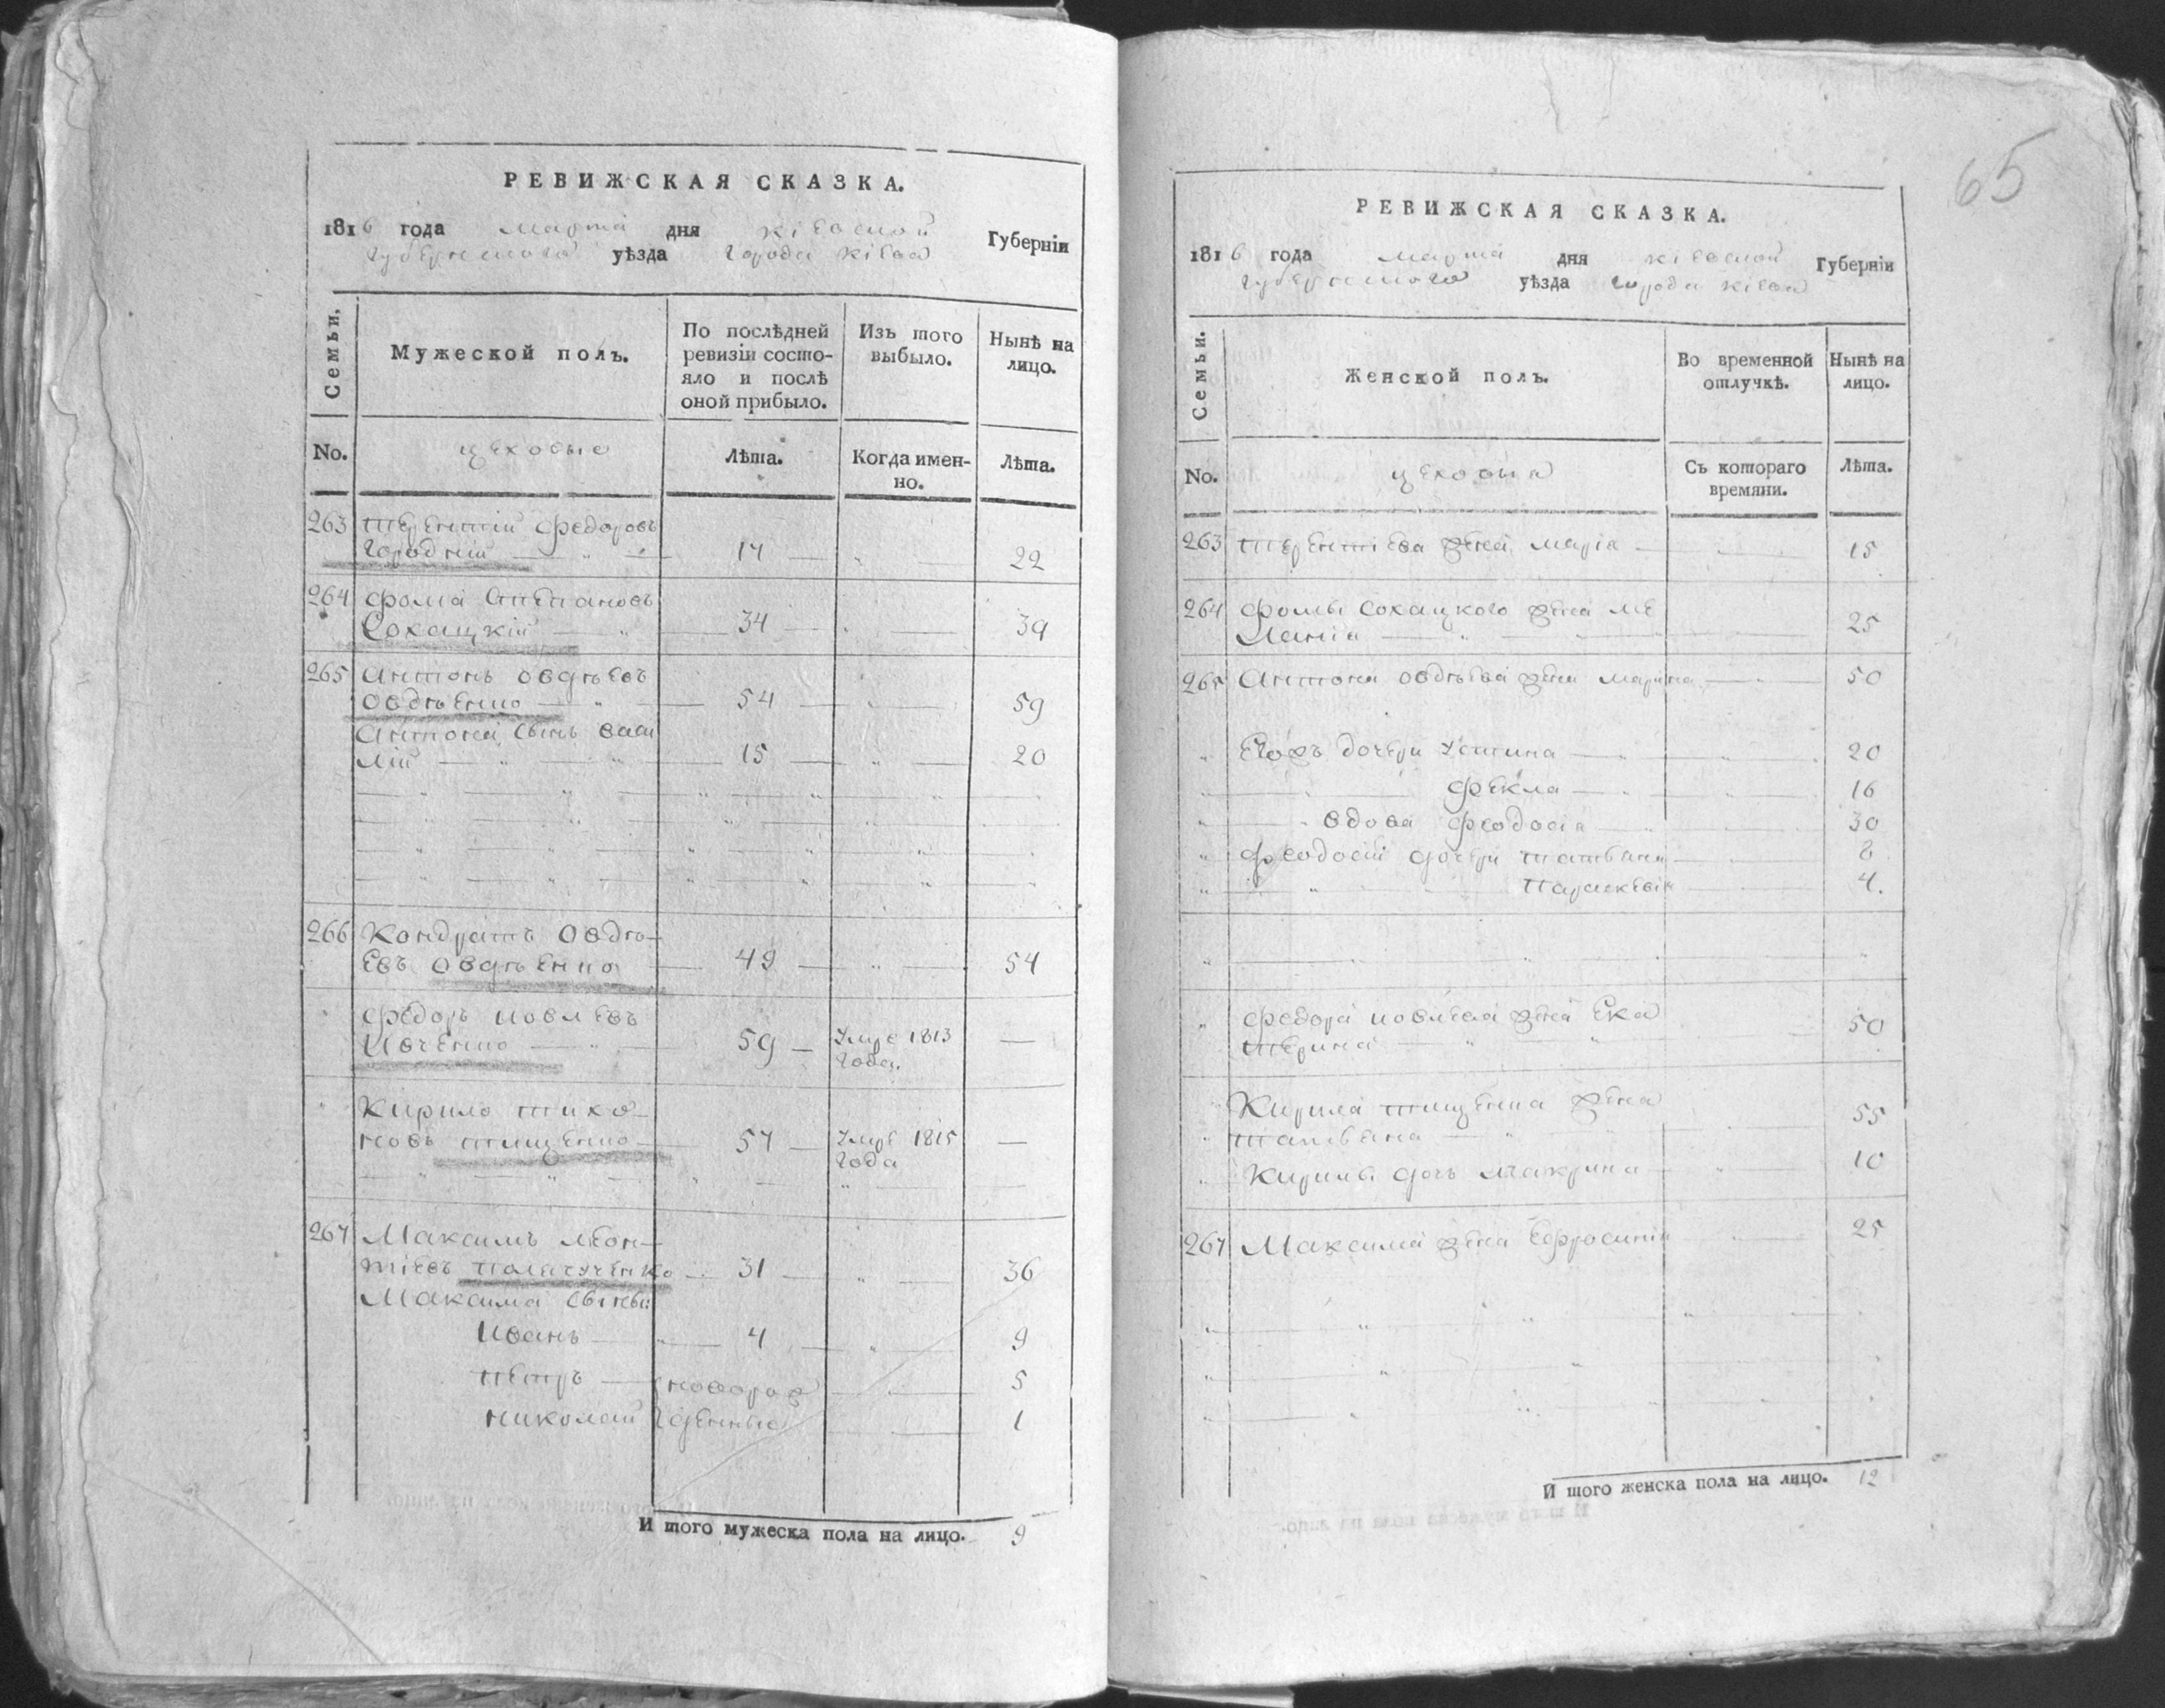 РЕВИЖСКАЯ СКАЗКА.
1816 года марта дня кіевской Губерніи
губернского уѣзда города кіева
Семьи.
Мужеской полъ.
По послѣдней ревизіи состояло и послѣ оной прибыло.
Изъ того выбыло.
Нынѣ на лицо.
No.
цеховые
Лѣта.
Когда именно.
Лѣта.
263 терентій федоровъ
городній 17 22
264 фома степановъ
Сохацкій 34 39
265 антонъ овдѣевъ
овдѣенко 54 59
антона сынъ васи
лій 15 20
266 Кондратъ овдѣ-
евъ овдѣенко 49 54
федоръ
59 Умре 1813 года
Кирило тихо-
новъ тищенко 57 Умре 1815 года
267 Максимъ леон-
тіевъ 31 36
Максима сыны:
иванъ 4 9
петръ новорож 5
николай денные 1
И того мужеска пола на лицо. 9
65
РЕВИЖСКАЯ СКАЗКА.
1816 года марта дня кіевской Губерніи
губернского уѣзда города кіева
Семьи.
Женской полъ.
Во временной отлучкѣ.
Нынѣ на лицо.
No.
цеховыя
Съ котораго времяни.
Лѣта.
263 терентіева жена марія 15
264 фомы сохацкого жена ме
ланія 25
265 антона овдѣева жена марина 50
Егожъ дочери устина 20
фекла 16
вдова феодосія 30
феодосіи дочери татьяна 8
параскевія 4.
федора жена ека
терина 50
Кирила тищенка жена
татьяна 55
Кирилы дочь макрина 10
267 Максима жена Ефросинія 25
И того женска пола на лицо. 12